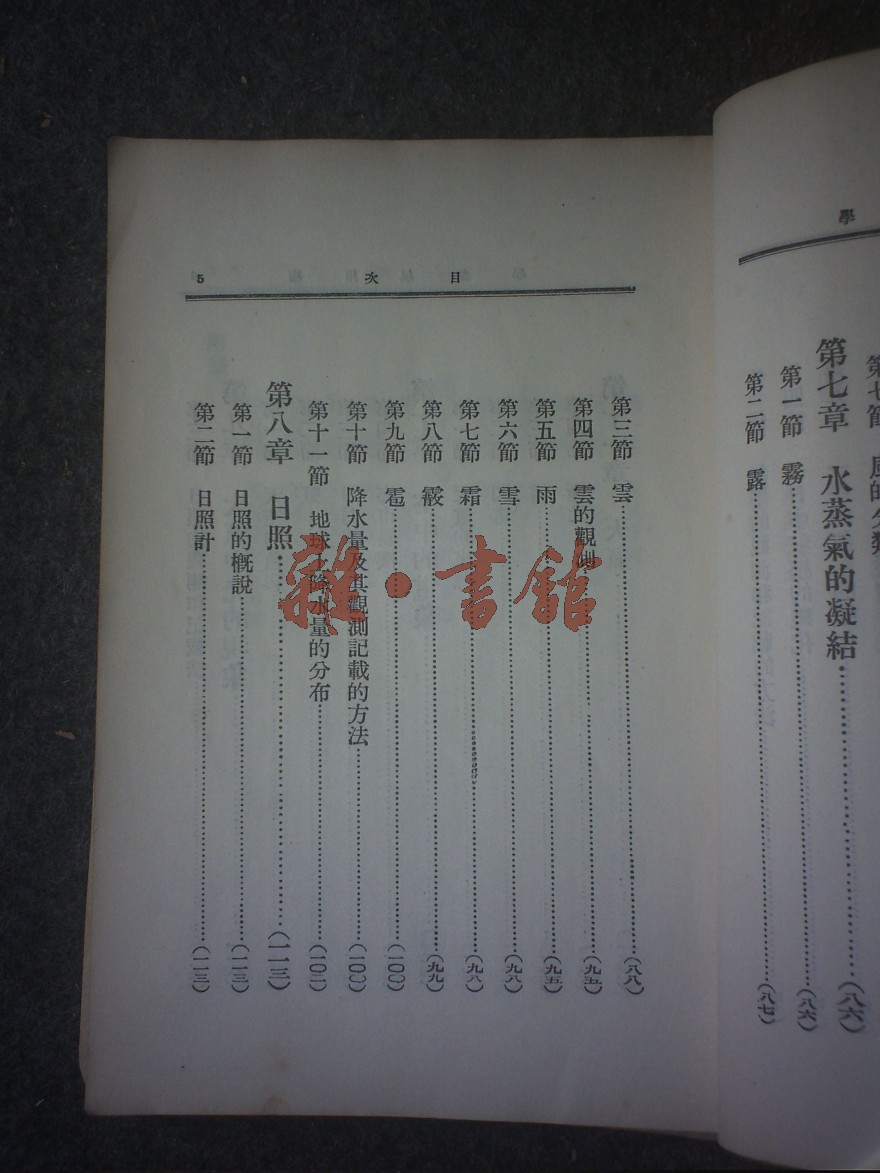 學
第七章 水蒸氣的凝結……(八六)
第一節 霧……(八六)
第二節 露……(八七)
目次 5
第三節 雲……(八八)
第四節 雲的觀測……(九五)
第五節 雨……(九五)
第六節 雪……(九八)
第七節 霜……(九八)
第八節 霰……(九九)
第九節 雹……(一〇〇)
第十節 降水量及其觀測記載的方法……(一〇〇)
第十一節 地球上降水量的分布……(一〇二)
第八章 日照……(一一三)
第一節 日照的概說……(一一三)
第二節 日照計……(一一三)
雜·書館